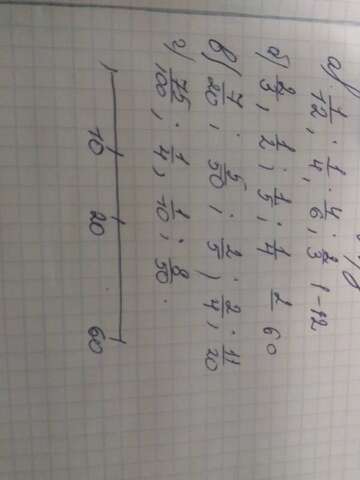 а) 1/12 ; 1/4 ; 4/6 ; 2/3 1-12
б) 2/3 ; 1/2 ; 1/5 ; 1/4 1 60
в) 7/20 ; 5/50 ; 2/5 ; 2/4 ; 11/20
г) 75/100 ; 1/4 ; 1/10 ; 8/50 .
10 20 60